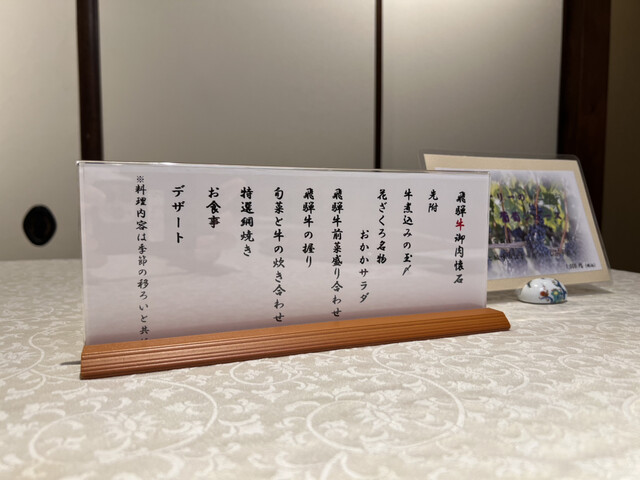 飛騨牛御肉懐石
先附
牛煮込みの玉〆
花ざくろ名物
おかかサラダ
飛騨牛前菜盛り合わせ
飛騨牛の握り
旬菜と牛の炊き合わせ
特選網焼き
お食事
デザート
※料理内容は季節の移ろいと共に